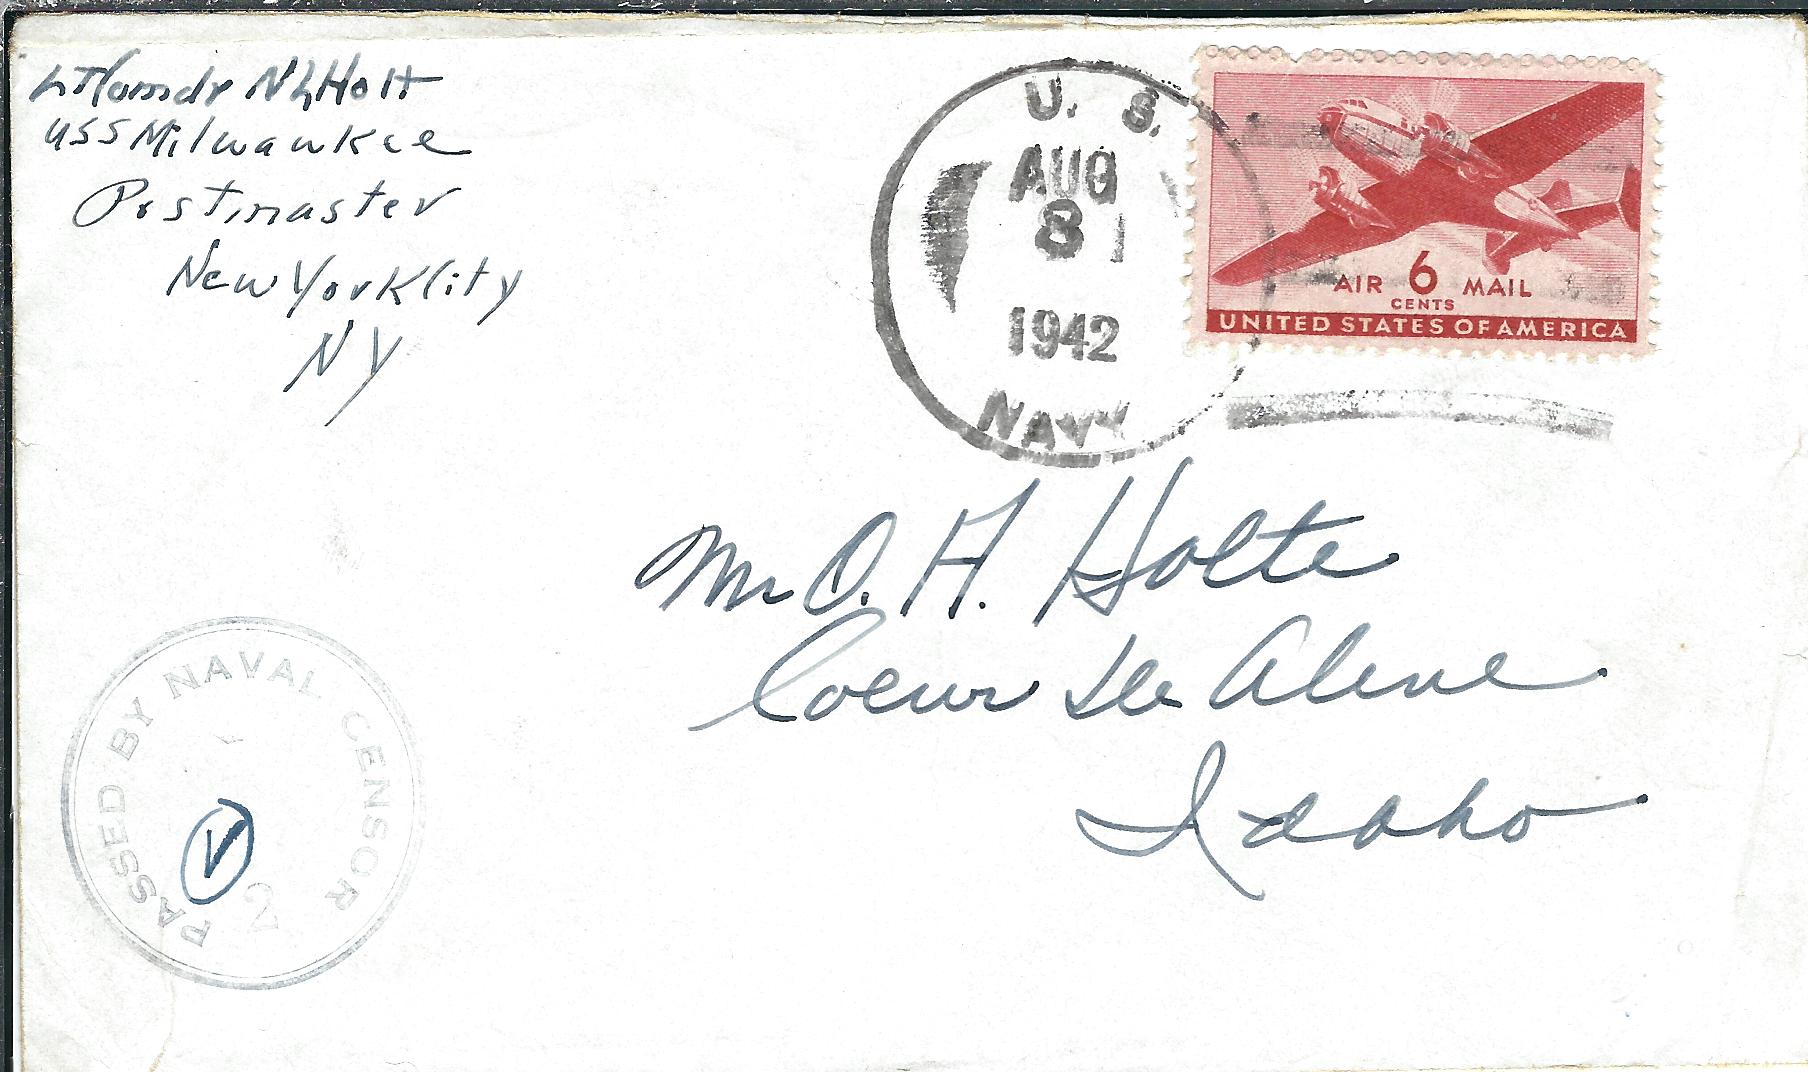 Lt Comdr N L Holt
USS Milwaukee
Postmaster
New York City
NY
U. S.
AUG
8
1942
NAVY
AIR 6 MAIL
CENTS
UNITED STATES OF AMERICA
Mr O. H. Holte
Coeur De Alene
Idaho
PASSED BY NAVAL CENSOR